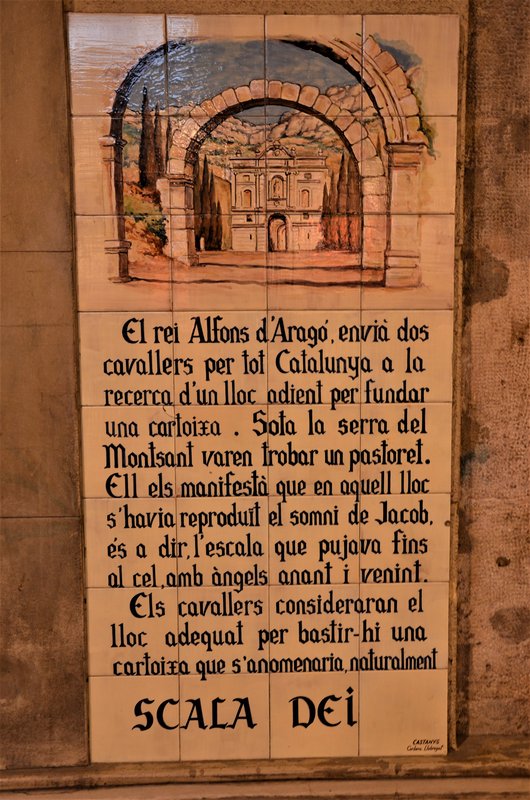 El rei Alfons d'Aragó, envià dos
cavallers per tot Catalunya a la
recerca d'un lloc adient per fundar
una cartoixa . Sota la serra del
Montsant varen trobar un pastoret.
Ell els manifestà que en aquell lloc
s'havia reproduït el somni de Jacob,
és a dir, l'escala que pujava fins
al cel, amb àngels anant i venint.
Els cavallers consideraran el
lloc adequat per bastir-hi una
cartoixa que s'anomenaria, naturalment
SCALA DEi
CASTANYS
Corbera Llobregat